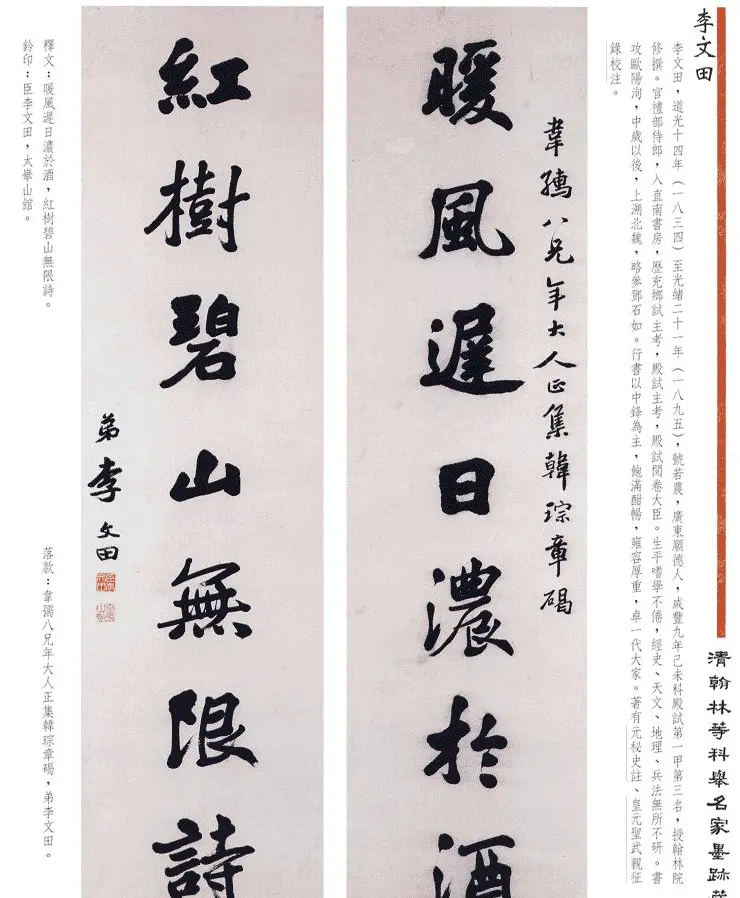 清翰林等科舉名家墨跡
李文田
李文田，道光十四年（一八三四）至光緒二十一年（一八九五），號若農，廣東順德人，咸豐九年己未科殿試第一甲第三名，授翰林院
修撰。官禮部侍郎，入直南書房，歷充鄉試主考，殿試主考，殿試閱卷大臣。生平嗜學不倦，經史、天文、地理、兵法無所不研。書
攻歐陽洵，中歲以後，上溯北魏，略參鄧石如。行書以中鋒為主，飽滿酣暢，雍容厚重，卓一代大家。著有元秘史註、皇元聖武親征
錄校注。
韋八兄年大人正集韓琮章碣
暖風遲日濃於酒
紅樹碧山無限詩
弟李文田
釋文：暖風遲日濃於酒，紅樹碧山無限詩。
鈐印：臣李文田，太華山館。
落款：韋八兄年大人正集韓琮章碣，弟李文田。